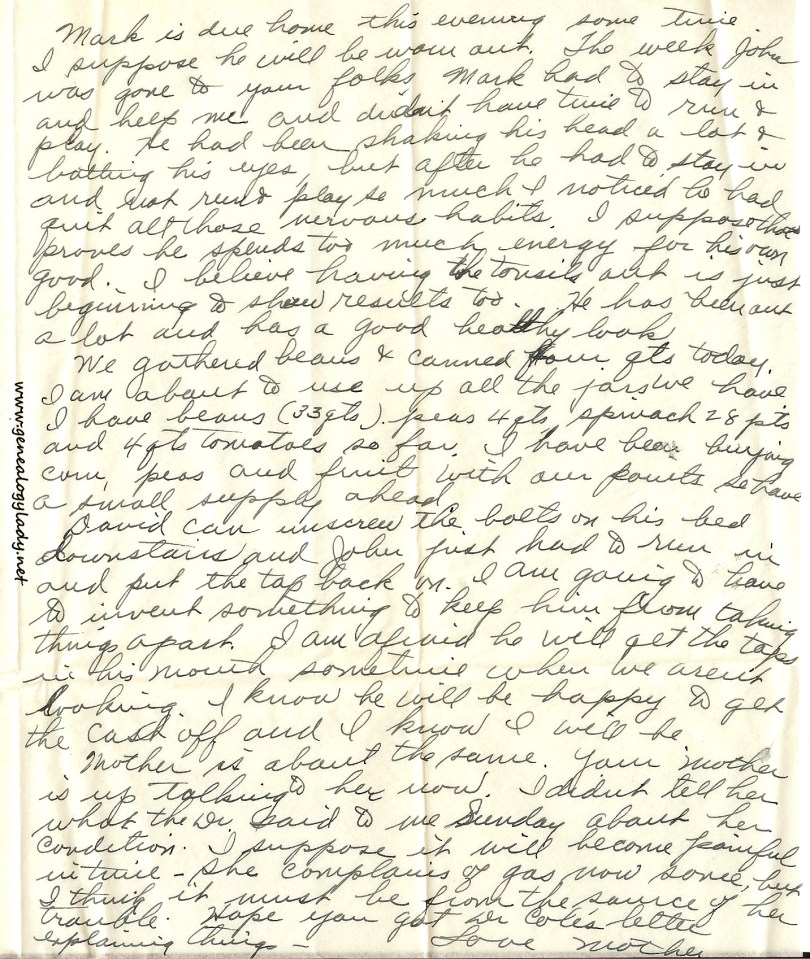 Mark is due home this evening some time
I suppose he will be worn out. The week John
was gone to your folks Mark had to stay in
and help me and didn't have time to run &
play. He had been shaking his head a lot &
batting his eyes, but after he had to stay in
and not run & play so much I noticed he had
quit all those nervous habits. I suppose that
proves he spends too much energy for his own
good. I believe having the tonsils out is just
beginning to show results too. He has been out
a lot and has a good healthy look
We gathered beans & canned four qts today.
I am about to use up all the jars we have
I have beans (33 qts). peas 4 qts, spinach 28 pts
and 4 qts tomatoes so far. I have been buying
corn, peas and fruit with our points so have
a small supply ahead
David can unscrew the bolts on his bed
downstairs and John just had to run in
and put the tap back on. I am going to have
to invent something to keep him from taking
things apart. I am afraid he will get the taps
in his mouth sometime when we arent
looking. I know he will be happy to get
the cast off and I know I will be
Mother is about the same. Your mother
is up talking to her now. I didnt tell her
what the Dr. said to me Sunday about her
condition. I suppose it will become painful
in time - she complains of gas now some, but
I think it must be from the source of her
trouble. Hope you got Dr Cole's letter
explaining things - Love Mother
www.genealogylady.net